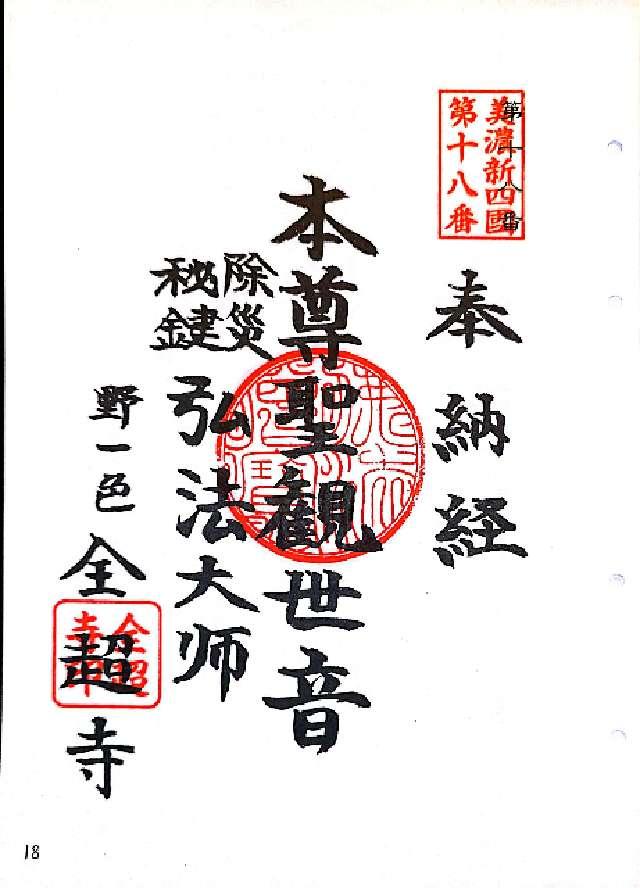 美濃新四國
第十八番
第十八番
奉納経
本尊聖観世音
除災
秘鍵
弘法大师
野一色
全超寺
全超
寺印
18